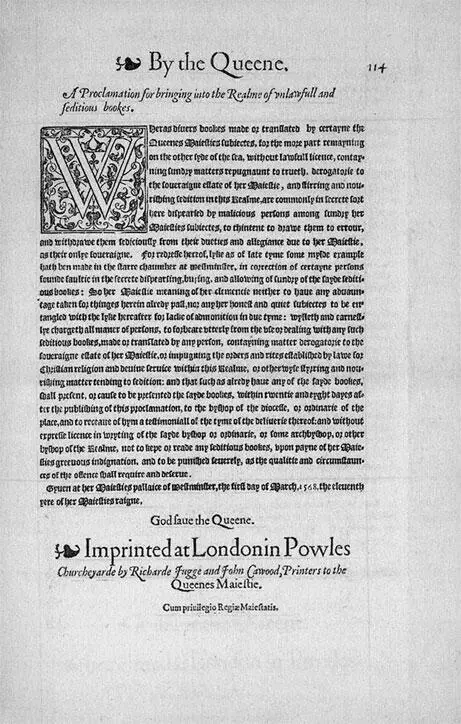 By the Queene.
114
A Proclamation for bringing into the Realme of vnlawfull and
seditious bookes.
WHeras diuers bookes made or translated by certayne the
Queenes Maiesties subiectes, for the more part remayning
on the other syde of the sea, without lawfull licence, contay-
ning sundry matters repugnaunt to trueth, derogatorie to
the soueraigne estate of her Maiestie, and stirring and nou-
rishing sedition in this Realme, are commonly in secrete sort
here dispearsed by malicious persons among sundry her
Maiesties subiectes, to thintent to drawe them to errour,
and withdrawe them sediciously from their dueties and allegiance due to her Maiestie,
as their onlye soueraigne. For redresse hereof, lyke as of late tyme some mylde example
hath ben made in the starre chaumber at Westminster, in correction of certayne persons
founde faultie in the secrete dispearsing, buying, and allowing of sundry of the sayde sediti-
ous bookes: So her Maiestie meaning of her clemencie neither to haue any aduaun-
tage taken for thinges herein alredy past, nor any her honest and quiet subiectes to be en-
tangled with the lyke hereafter for lacke of admonition in due tyme: wylleth and earnest-
lye chargeth all maner of persons, to forbeare vtterly from the vse or dealing with any such
seditious bookes, made or translated by any person, contayning matter derogatorie to the
soueraigne estate of her Maiestie, or impugning the orders and rites established by lawe for
Christian religion and deuine seruice within this Realme, or otherwyse styrring and nou-
rishing matter tending to sedition: and that such as alredy haue any of the sayde bookes,
shall present, or cause to be presented the sayde bookes, within twentie and eyght dayes af-
ter the publishing of this proclamation, to the byshop of the diocesse, or ordinarie of the
place, and to receaue of hym a testimoniall of the tyme of the deliuerie thereof: and without
expresse licence in wryting of the sayde byshop or ordinarie, or some archbyshop, or other
byshop of the Realme, not to kepe or reade any seditious bookes, vpon payne of her Maie-
sties greeuous indignation, and to be punished seuerely, as the qualitie and circumstaun-
ces of the offence shall require and deserue.
Gyuen at her Maiesties pallaice of Westminster, the first day of March, 1568. the eleuenth
yere of her Maiesties raigne.
God saue the Queene.
Imprinted at London in Powles
Churcheyarde by Richarde Iugge and Iohn Cawood, Printers to the
Queenes Maiestie.
Cum priuilegio Regiæ Maiestatis.